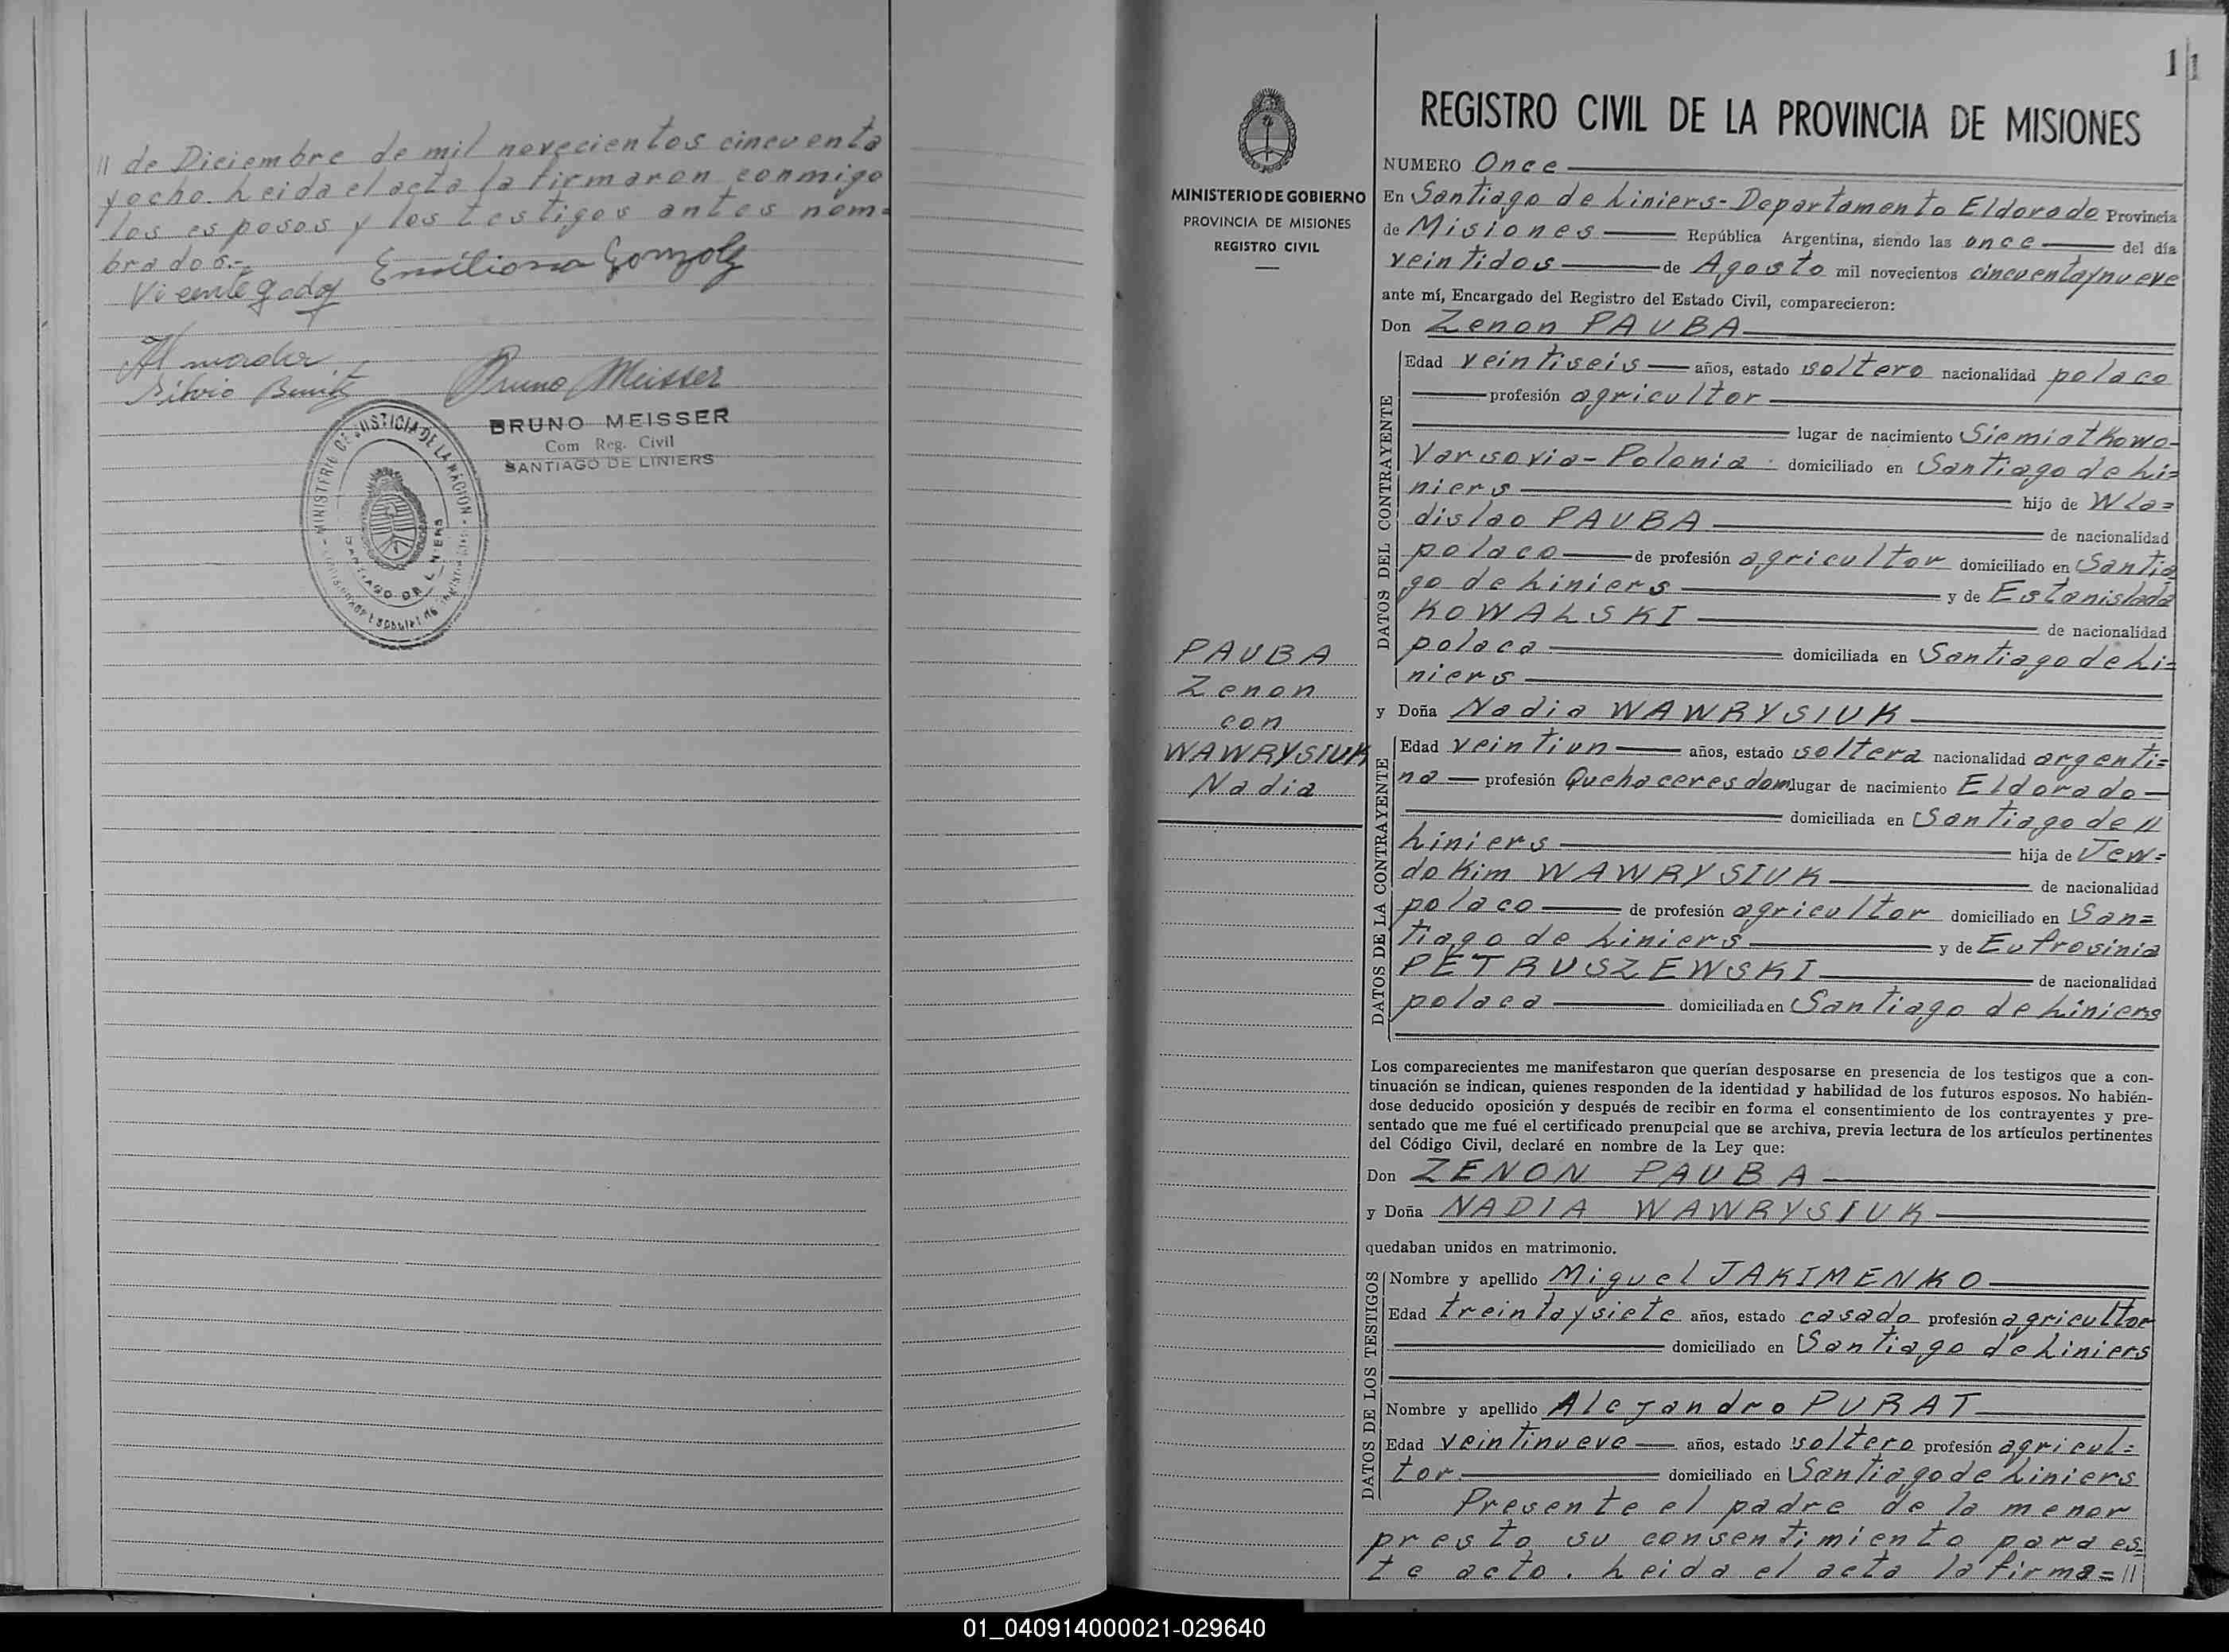 11 de Diciembre de mil novecientos cincuenta
y ocho. Leida el acta la firmaron conmigo
los esposos y los testigos antes nom=
brados.-
Vicente Godoy Emiliana Gonzalz
Silvio Beniz Bruno Meisser
BRUNO MEISSER
Com Reg. Civil
SANTIAGO DE LINIERS
MINISTERIO DE JUSTICIA DE LA NACION
SANTIAGO DE LINIERS
11
REGISTRO CIVIL DE LA PROVINCIA DE MISIONES
MINISTERIO DE GOBIERNO
PROVINCIA DE MISIONES
REGISTRO CIVIL
NUMERO Once
En Santiago de Liniers-Departamento Eldorado Provincia
de Misiones República Argentina, siendo las once del día
veintidos de Agosto mil novecientos cincuentaynueve
ante mí, Encargado del Registro del Estado Civil, comparecieron:
Don Zenon PAUBA
DATOS DEL CONTRAYENTE
Edad veintiseis años, estado soltero nacionalidad polaco
profesión agricultor
lugar de nacimiento Siemiatkowo-
Varsovia-Polonia domiciliado en Santiago de Li=
niers hijo de Wla=
dislao PAUBA de nacionalidad
polaco de profesión agricultor domiciliado en Santia
go de Liniers y de Estanislada
KOWALSKI de nacionalidad
polaca domiciliada en Santiago de Li=
niers
PAUBA
Zenon
con
WAWRYSIUK
Nadia
y Doña Nadia WAWRYSIUK
DATOS DE LA CONTRAYENTE
Edad veintiun años, estado soltera nacionalidad argenti=
na profesión Quehaceres dom. lugar de nacimiento Eldorado
domiciliada en Santiago de //
Liniers hija de Jew=
dokim WAWRYSIUK de nacionalidad
polaco de profesión agricultor domiciliado en San=
tiago de Liniers y de Eufrosinia
PETRUSZEWSKI de nacionalidad
polaca domiciliada en Santiago de Liniers
Los comparecientes me manifestaron que querían desposarse en presencia de los testigos que a con-
tinuación se indican, quienes responden de la identidad y habilidad de los futuros esposos. No habién-
dose deducido oposición y después de recibir en forma el consentimiento de los contrayentes y pre-
sentado que me fué el certificado prenupcial que se archiva, previa lectura de los artículos pertinentes
del Código Civil, declaré en nombre de la Ley que:
Don ZENON PAUBA
y Doña NADIA WAWRYSIUK
quedaban unidos en matrimonio.
DATOS DE LOS TESTIGOS
Nombre y apellido Miguel JAKIMENKO
Edad treintaysiete años, estado casado profesión agricultor
domiciliado en Santiago de Liniers
Nombre y apellido Alejandro PURAT
Edad veintinueve años, estado soltero profesión agricul=
tor domiciliado en Santiago de Liniers
Presente el padre de la menor
presto su consentimiento para es=
te acto. Leida el acta la firma=//
01_040914000021-029640